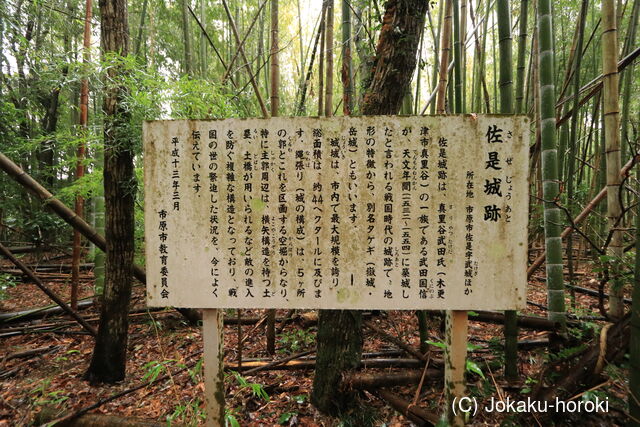 佐是城跡
さぜじょうあと
所在地 市原市佐是字武城ほか
佐是城跡は、真里谷武田氏(木更
津市真里谷)の一族である武田国信
が、天文年間(一五三二〜一五五四)に築城し
たと言われる戦国時代の城跡で、地
形の特徴から、別名タケギ(嶽城・
岳城)ともいいます。
城域は、市内で最大規模を誇り、
総面積は、約44ヘクタールに及びま
す。縄張り(城の構成)は、5ヶ所
の郭とこれを区画する空堀からなり、
特に主郭周辺は、横矢構造を持つ土
塁、土橋が用いられるなど敵の進入
を防ぐ複雑な構造となっており、戦
国の世の緊迫した状況を、今によく
伝えています。
平成十三年三月
市原市教育委員会
(C) Jokaku-horoki